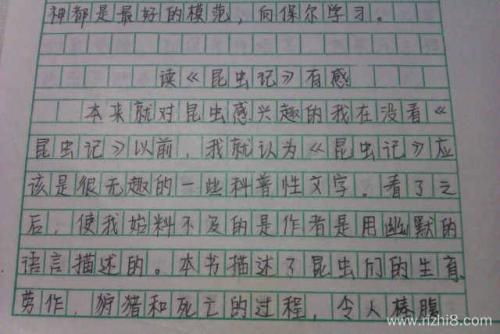 神都是最好的模范，向保尔学习。
读《昆虫记》有感
本来就对昆虫感兴趣的我在没看《
昆虫记》以前，我就认为《昆虫记》应
该是很无趣的一些科普性文字，看了之
后，使我始料不及的是作者是用幽默的
语言描述的。本书描述了昆虫们的生育、
劳作，狩猎和死亡的过程，令人捧腹
www.rizhi8.com